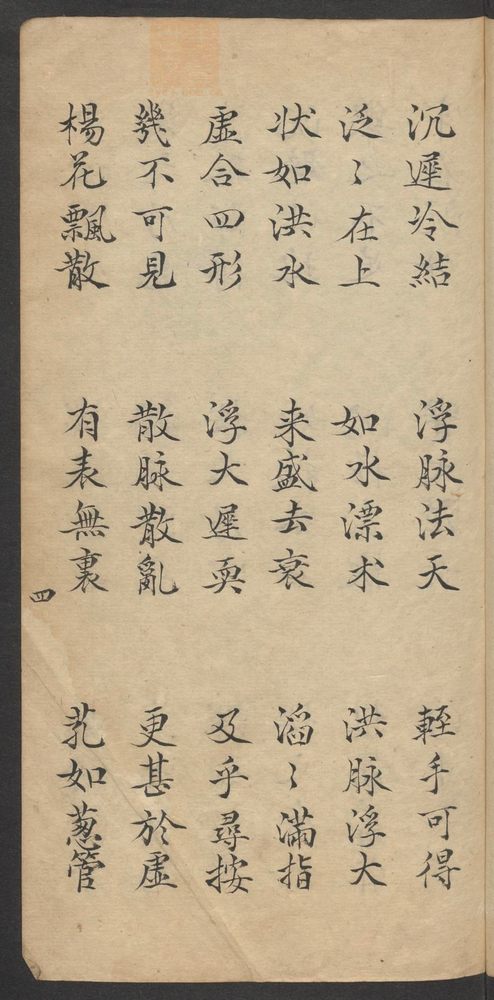 沉遲冷結 浮脉法天 輕手可得
泛〻在上 如水漂木 洪脉浮大
状如洪水 来盛去衰 滔〻滿指
虛合四形 浮大遲耎 及乎尋按
幾不可見 散脉散亂 更甚於虛
楊花飄散 有表無裏 芤如葱管
四